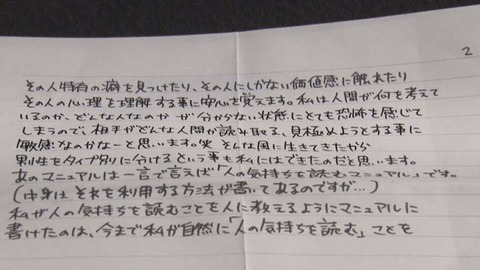 2
その人特有の癖を見つけたり、その人にしかない価値感に触れたり
その人の心理を理解する事に安心を覚えます。私は人間が何を考えて
いるのか、どんな人なのか が分からない状態にとても恐怖を感じて
しまうので、相手がどんな人間か読み取る、見極めようとする事に
敏感なのかなーと思います。笑 そんな風に生きてきたから
男性をタイプ別に分けるという事も私にはできたのだと思います。
あのマニュアルは一言で言えば「人の気持ちを読むマニュアル」です。
(中身はそれを利用する方法が書いてあるのですが…)
私が人の気持ちを読むことを人に教えるようにマニュアルに
書けたのは、今まで私が自然に「人の気持ちを読む」ことを